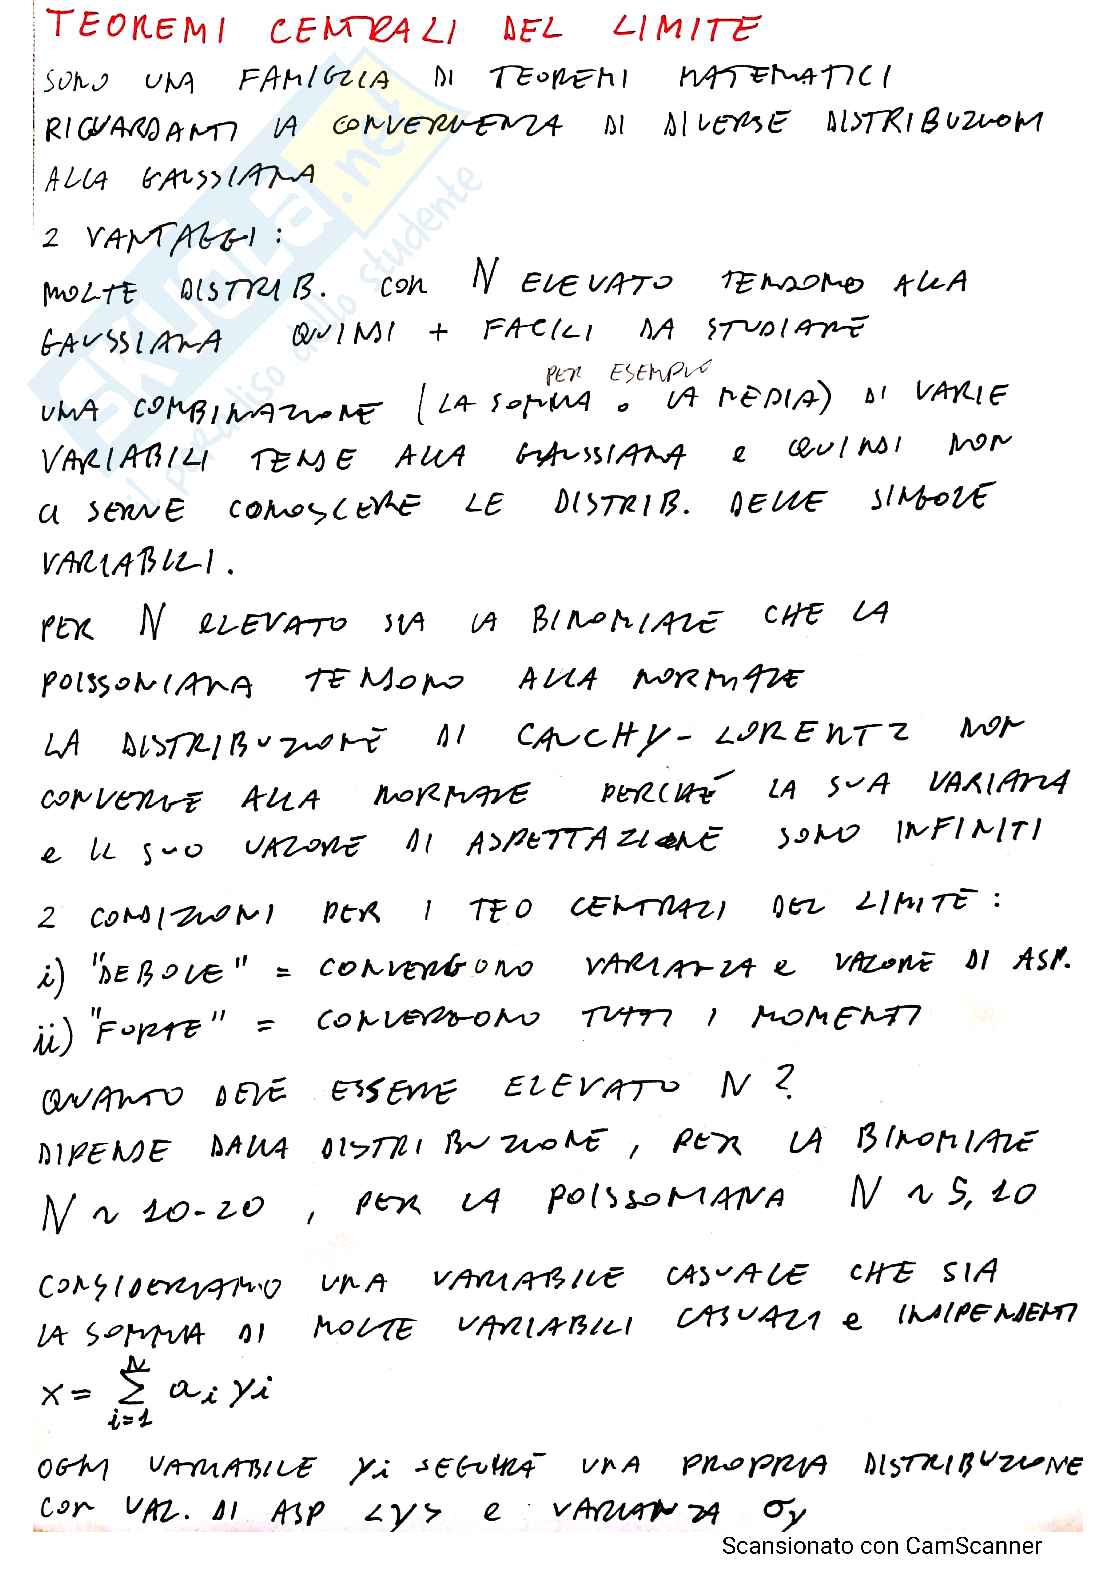 TEOREMI CENTRALI DEL LIMITE
SONO UNA FAMIGLIA DI TEOREMI MATEMATICI
RIGUARDANTI LA CONVERGENZA DI DIVERSE DISTRIBUZIONI
ALLA GAUSSIANA
2 VANTAGGI:
MOLTE DISTRIB. CON N ELEVATO TENDONO ALLA
GAUSSIANA QUINDI + FACILI DA STUDIARE
PER ESEMPIO
UNA COMBINAZIONE (LA SOMMA O LA MEDIA) DI VARIE
VARIABILI TENDE ALLA GAUSSIANA e QUINDI NON
CI SERVE CONOSCERE LE DISTRIB. DELLE SINGOLE
VARIABILI.
PER N ELEVATO SIA LA BINOMIALE CHE LA
POISSONIANA TENDONO ALLA NORMALE
LA DISTRIBUZIONE DI CAUCHY-LORENTZ NON
CONVERGE ALLA NORMALE PERCHÉ LA SUA VARIANZA
e IL SUO VALORE DI ASPETTAZIONE SONO INFINITI
2 CONDIZIONI PER I TEO CENTRALI DEL LIMITE:
i) "DEBOLE" = CONVERGONO VARIANZA e VALORE DI ASP.
ii) "FORTE" = CONVERGONO TUTTI I MOMENTI
QUANTO DEVE ESSERE ELEVATO N?
DIPENDE DALLA DISTRIBUZIONE, PER LA BINOMIALE
N ~ 10-20, PER LA POISSONIANA N ~ 5, 10
CONSIDERIAMO UNA VARIABILE CASUALE CHE SIA
LA SOMMA DI MOLTE VARIABILI CASUALI e INDIPENDENTI
x = ∑_{i=1}^{N} a_i y_i
OGNI VARIABILE y_i SEGUIRÀ UNA PROPRIA DISTRIBUZIONE
CON VAL. DI ASP <y> e VARIANZA σ_y
SKUOLA.net
il paradiso dello studente
Scansionato con CamScanner